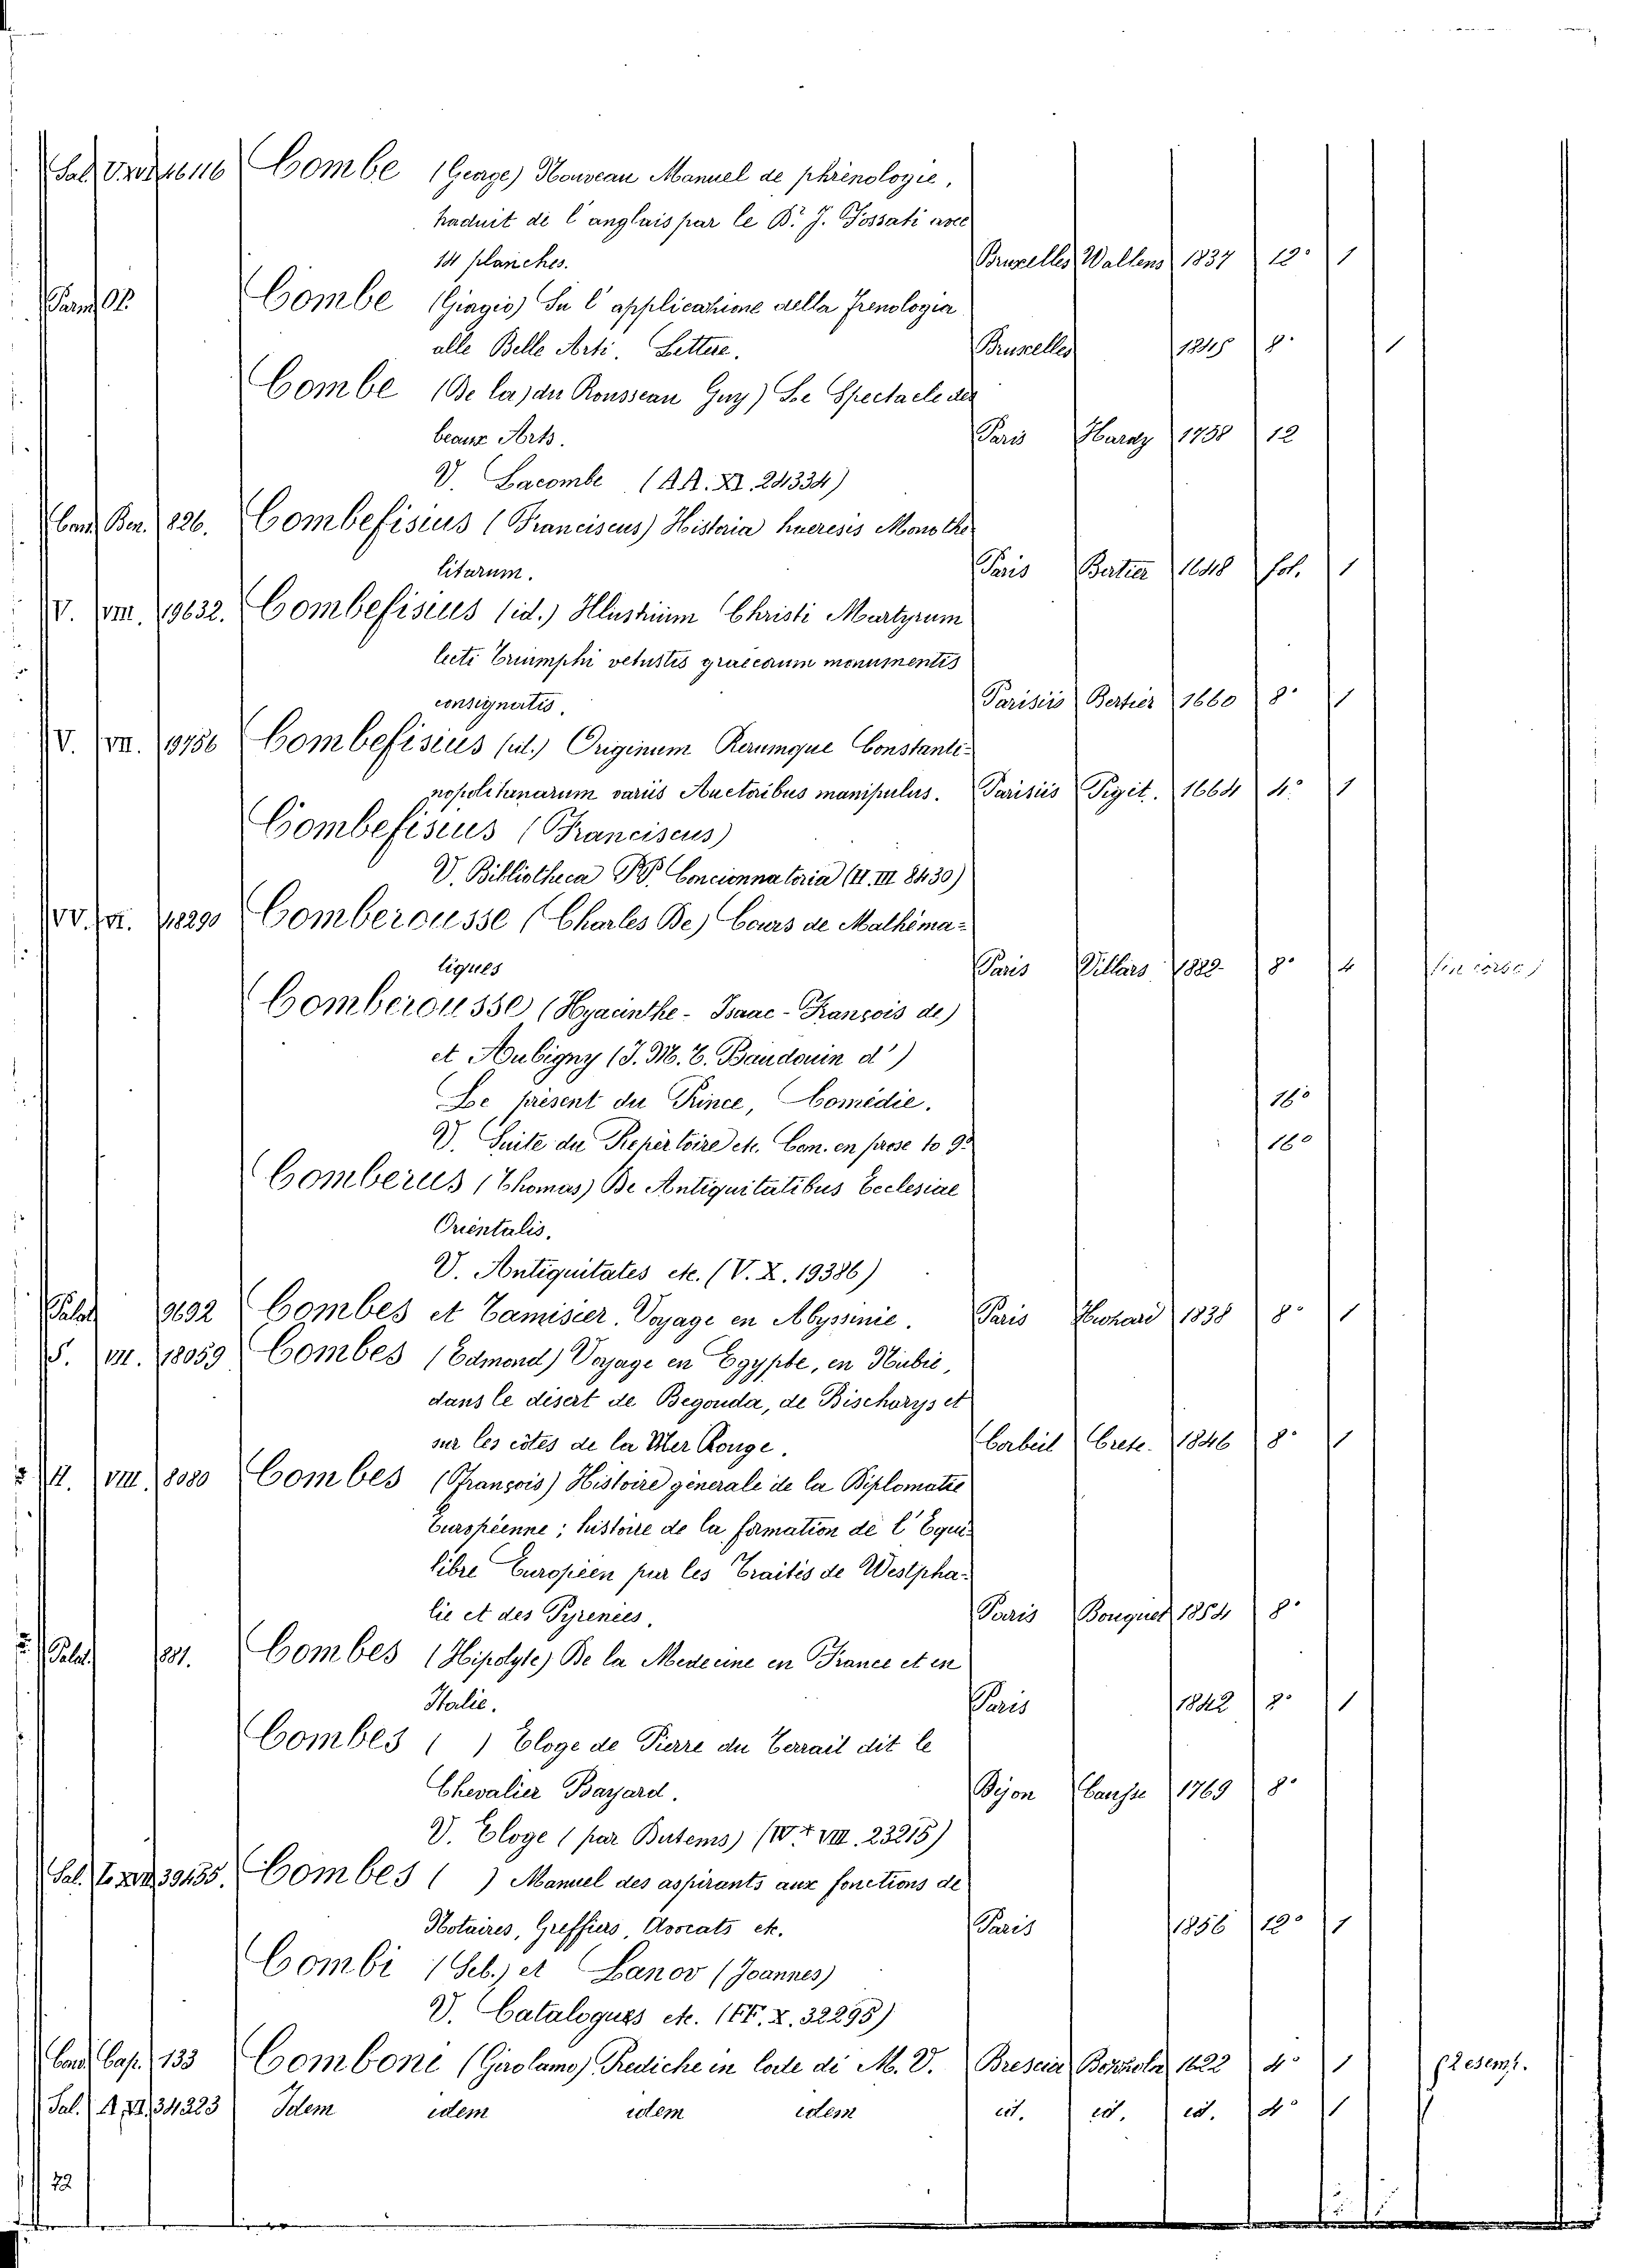 Combe (George) Nouveau Manuel de phrénologie,
traduit de l'anglais par le Dr. J. Fossati avec
14 planches. Bruxelles Wallens 1837 12° 1
Combe (Giorgio) Su l'applicazione della frenologia
alle Belle Arti. Lettere. Bruxelles 1845 8° 1
Combe (De la) du Rousseau Guy) Le Spectacle des
beaux Arts. Paris 1758 12
V. Lacombe (AA. XI. 24334)
Ber. 826. Combefisius (Franciscus) Historia haeresis Monothe
litarum. Paris Bertier 1648 fol. 1
V. VIII. 19632. Combefisius (id.) Illustrium Christi Martyrum
lecti Triumphi vetustis graecorum monumentis
consignatis. Parisiis Bertier 1660 8° 1
V. VII. 19756 Combefisius (id.) Originum Rerumque Constanti-
nopolitanarum variis Auctoribus manipulus. Parisiis Pigit. 1664 4° 1
Combefisius (Franciscus)
V. Bibliotheca PP. Concionnatoria (II. III 8430)
48290 Comberousse (Charles De) Cours de Mathéma-
tiques Paris Villars 1882- 8° 4 (in corso)
Comberousse (Hyacinthe-Isaac-François de)
et Aubigny (J. M. T. Baudouin d')
Le présent du Prince, Comédie. 16°
V. Suite du Répertoire etc. Com. en prose to 9° 16°
Comberus (Thomas) De Antiquitatibus Ecclesiae
Orientalis.
V. Antiquitates etc. (V. X. 19386)
Palat 9692 Combes et Tamisier. Voyage en Abyssinie. Paris 1838 8° 1
S. VII. 18059 Combes (Edmond) Voyage en Egypte, en Nubie,
dans le désert de Begouda, de Bischarys et
sur les côtes de la Mer Rouge. Corbeil Crete. 1846 8° 1
II. VIII. 8080 Combes (François) Histoire générale de la Diplomatie
Européenne; histoire de la formation de l'Equi-
libre Européen par les Traités de Westpha-
lie et des Pyrenées. Paris Bouquet 1854 8°
Palat. 881. Combes (Hipolyte) De la Medecine en France et en
Italie. Paris 1842 8° 1
Combes ( ) Eloge de Pierre du Terrail dit le
Chevalier Bayard. Dijon Causse 1769 8°
V. Eloge (par Butems) (IV + VIII. 23215)
Sal. 39435. Combes ( ) Manuel des aspirants aux fonctions de
Notaires, Greffiers, Avocats etc. Paris 1856 12° 1
Combi (Seb.) et Lanov (Joannes)
V. Catalogues etc. (FF. X. 32295)
Cap. 133 Comboni (Girolamo) Prediche in lode di M. V. Brescia 1622 4° 1
Sal. A VI. 34223 Idem idem idem idem id. id. id. 4° 1
72